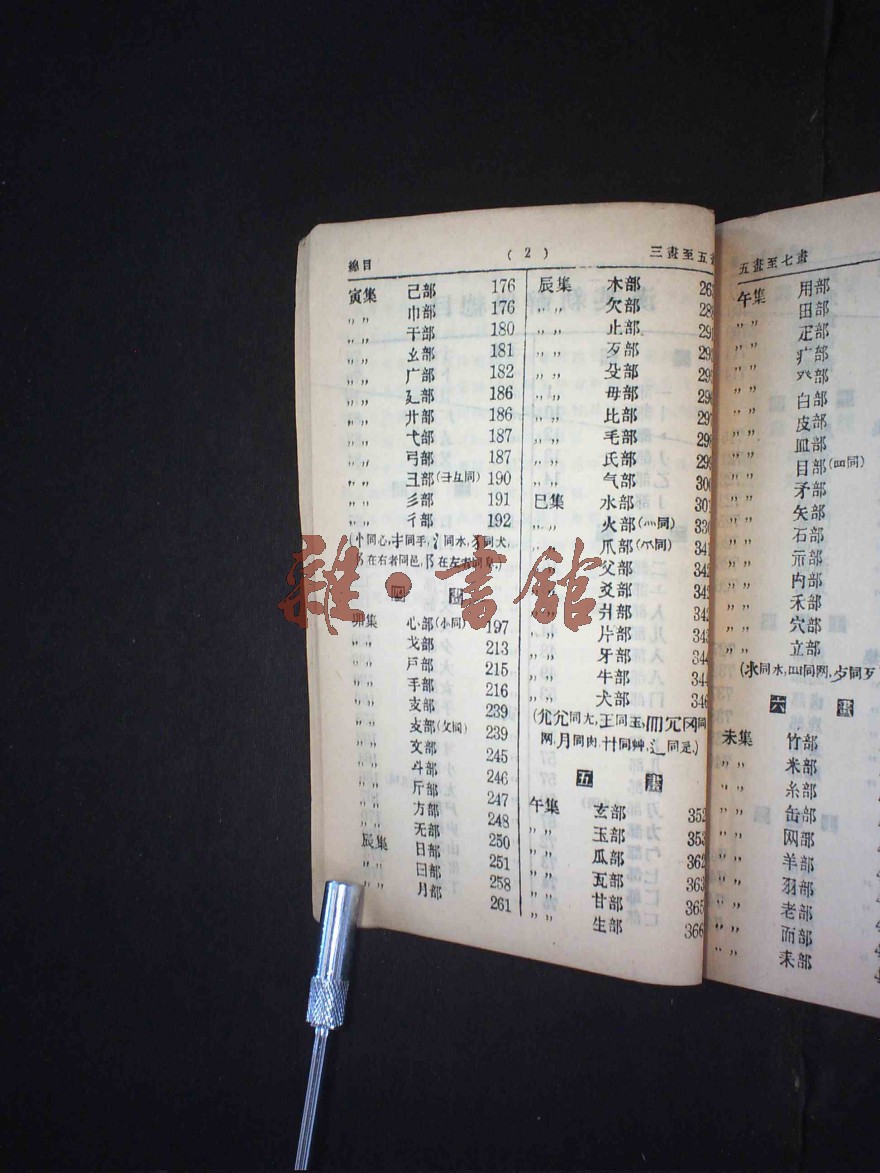 總目 (2) 三畫至五
寅集 己部 176
〃〃 巾部 176
〃〃 干部 180
〃〃 幺部 181
〃〃 广部 182
〃〃 廴部 186
〃〃 廾部 186
〃〃 弋部 187
〃〃 弓部 187
〃〃 彐部(彑同) 190
〃〃 彡部 191
〃〃 彳部 192
(忄同心,扌同手,氵同水,犭同犬,
阝在右者同邑,阝在左者同阜.)
四 畫
卯集 心部(小同) 197
〃〃 戈部 213
〃〃 戶部 215
〃〃 手部 216
〃〃 支部 239
〃〃 攴部(攵同) 239
〃〃 文部 245
〃〃 斗部 246
〃〃 斤部 247
〃〃 方部 248
〃〃 无部 250
辰集 日部 251
〃〃 曰部 258
〃〃 月部 261
辰集 木部 26
〃〃 欠部 28
〃〃 止部 291
〃〃 歹部 29
〃〃 殳部 29
〃〃 毋部 296
〃〃 比部 297
〃〃 毛部 29
〃〃 氏部 299
〃〃 气部 300
巳集 水部 301
〃〃 火部(灬同) 330
〃〃 爪部(爫同) 341
〃〃 父部 342
〃〃 爻部 342
〃〃 爿部 342
〃〃 片部 343
〃〃 牙部 344
〃〃 牛部 344
〃〃 犬部 346
(允尣同尢,王同玉,罒冗冈同
网,月同肉,艹同艸,辶同辵.)
五 畫
午集 玄部 352
〃〃 玉部 353
〃〃 瓜部 362
〃〃 瓦部 363
〃〃 甘部 365
〃〃 生部 366
五畫至七畫
午集 用部
〃〃 田部
〃〃 疋部
〃〃 疒部
〃〃 癶部
〃〃 白部
〃〃 皮部
〃〃 皿部
〃〃 目部(罒同)
〃〃 矛部
〃〃 矢部
〃〃 石部
〃〃 示部
〃〃 禸部
〃〃 禾部
〃〃 穴部
〃〃 立部
(氺同水,罒同网,歺同歹
六 畫
未集 竹部
〃〃 米部
〃〃 糸部
〃〃 缶部
〃〃 网部
〃〃 羊部
〃〃 羽部
〃〃 老部
〃〃 而部
〃〃 耒部
雜·書館